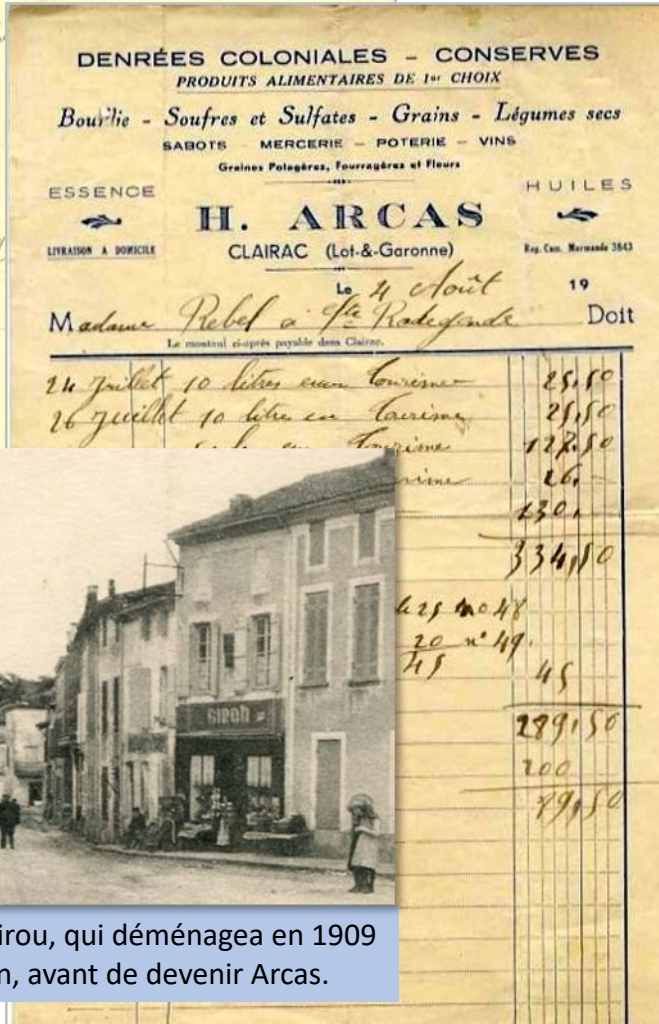 DENRÉES COLONIALES – CONSERVES
PRODUITS ALIMENTAIRES DE 1er CHOIX
Bouillie - Soufres et Sulfates - Grains - Légumes secs
SABOTS – MERCERIE – POTERIE – VINS
Graines Potagères, Fourragères et Fleurs
ESSENCE
HUILES
H. ARCAS
LIVRAISON A DOMICILE
CLAIRAC (Lot-&-Garonne)
Reg. Com. Marmande 3843
Le 4 Août 19
Madame Rebel à Ste Radegonde Doit
Le montant ci-après payable dans Clairac.
24 Juillet 10 litres 25,50
26 Juillet 10 litres 25,50
127,50
26,
130,
334,50
le 25 no 48
20 n° 49
45 45
289,50
200
89,50
GIROU
irou, qui déménagea en 1909
n, avant de devenir Arcas.